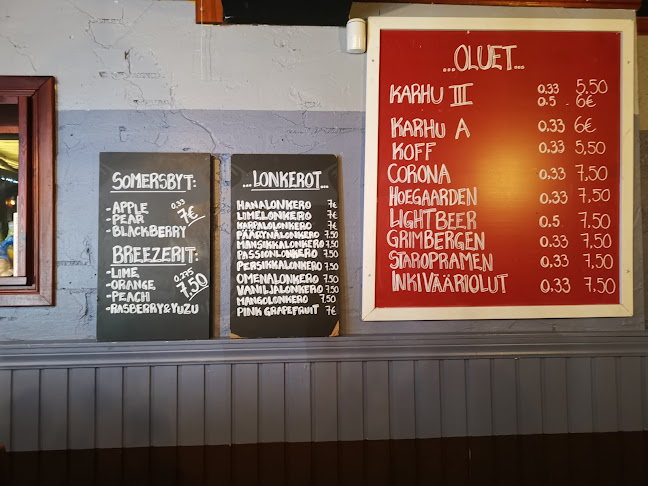 SOMERSBYT:
-APPLE 0.33
-PEAR 7€
-BLACKBERRY
BREEZERIT:
-LIME 0.275
-ORANGE 7.50
-PEACH
-RASBERRY&YUZU
...LONKEROT...
HANALONKERO 7€
LIMELONKERO 7€
KARPALOLONKERO 7€
PÄÄRYNÄLONKERO 7.50
MANSIKKALONKERO 7.50
PASSIONLONKERO 7.50
PERSIKKALONKERO 7.50
OMENALONKERO 7.50
VANILJALONKERO 7.50
MANGOLONKERO 7.50
PINK GRAPEFRUIT 7€
...OLUET...
KARHU III 0.33 5,50
0.5 . 6€
KARHU A 0,33 6€
KOFF 0.33 5,50
CORONA 0.33 7,50
HOEGAARDEN 0.33 7,50
LIGHTBEER 0.5 7,50
GRIMBERGEN 0.33 7,50
STAROPRAMEN 0.33 7,50
INKIVÄÄRIOLUT 0.33 7,50